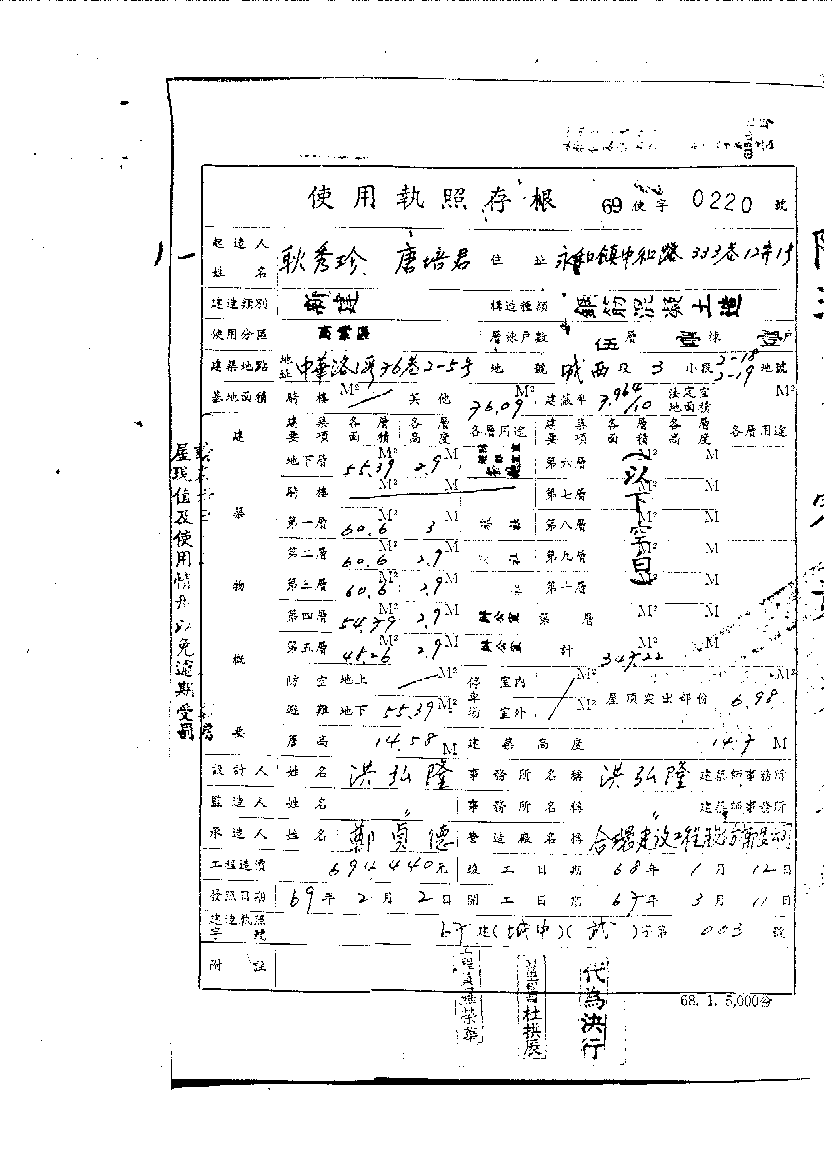 使用執照存根 69使字 0220 號
起造人姓名 耿秀珍、唐培君 住址 永和鎮中和路333巷12弄1號
建造類別 新建 構造種類 鋼筋混凝土造
使用分區 商業區 層棟戶數 伍層 壹棟 壹戶
建築地點 地址 中華路 76巷2-5号 地號 城西段 3 小段 3-18 3-19 地號
基地面積 騎樓 M² 其他 76.09 M² 建蔽率 7.964/10 法定空地面積 M²
建築物概要
建築要項 各層面積 各層高度 各層用途 建築要項 各層面積 各層高度 各層用途
地下層 55.39 M² 2.9 M 第六層 M² M
騎樓 M² M 第七層 M² M
第一層 60.6 M² 3 M 第八層 M² M
第二層 60.6 M² 2.9 M 第九層 M² M
第三層 60.6 M² 2.9 M 第十層 M² M
第四層 54.79 M² 2.9 M 第 層 M² M
第五層 48.26 M² 2.9 M 計 M² M
(以下空白)
防空避難 地上 M² 停車場 室內 M² 屋頂突出部份 6.98 M²
地下 55.39 M² 室外 M²
簷高 14.58 M 建築高度 14.7 M
設計人 姓名 洪弘隆 事務所名稱 洪弘隆 建築師事務所
監造人 姓名 〃 事務所名稱 〃 建築師事務所
承造人 姓名 鄭貞德 營造廠名稱
工程造價 691440元 竣工日期 68年 1月 12日
發照日期 69年 2月 2日 開工日期 67年 3月 11日
建造執照字號 67建(城中)( )字第 003 號
附註
代為決行
68. 1. 5,000份
屋現值及使用情形以免逾期受罰